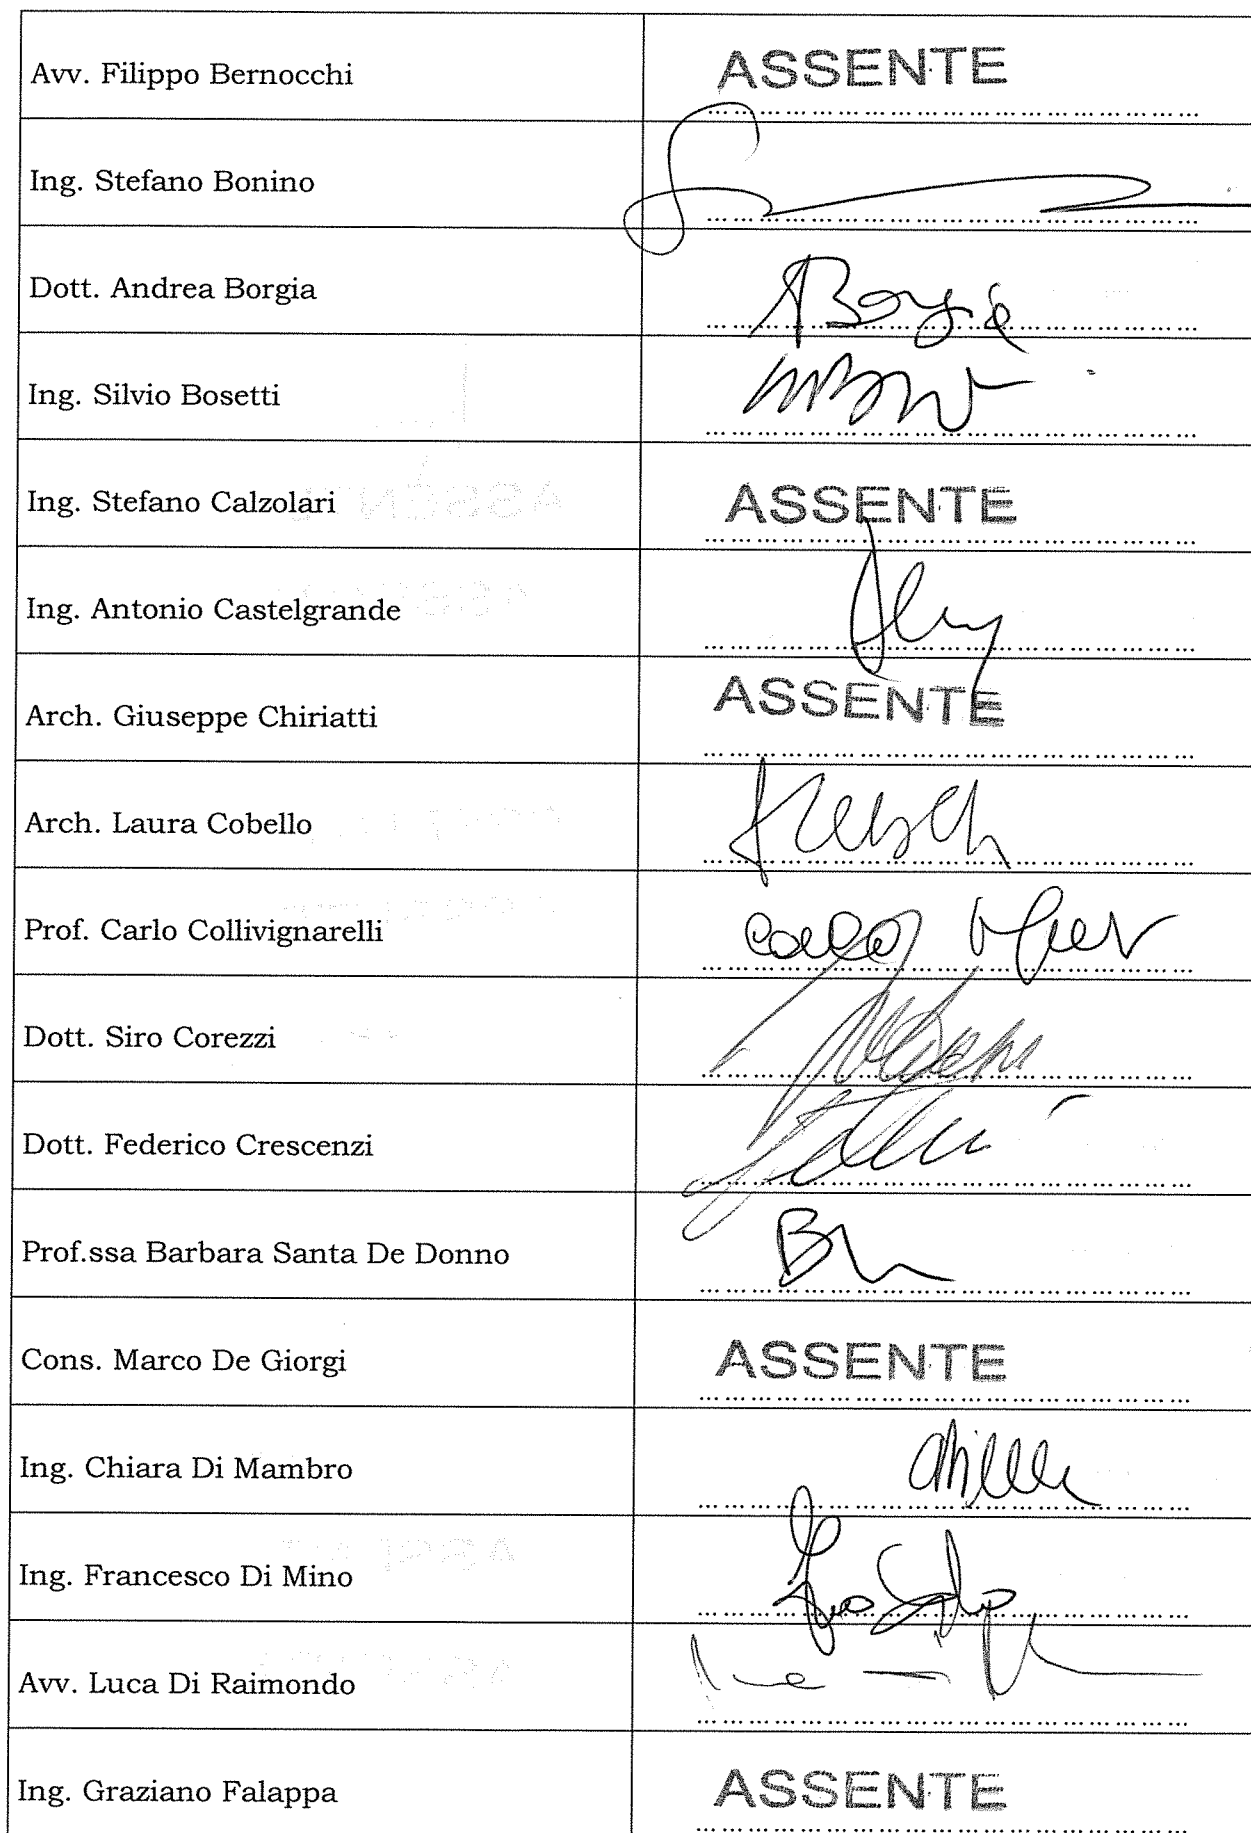 Avv. Filippo Bernocchi ASSENTE
Ing. Stefano Bonino
Dott. Andrea Borgia ABorgia
Ing. Silvio Bosetti
Ing. Stefano Calzolari ASSENTE
Ing. Antonio Castelgrande
Arch. Giuseppe Chiriatti ASSENTE
Arch. Laura Cobello
Prof. Carlo Collivignarelli Carlo
Dott. Siro Corezzi
Dott. Federico Crescenzi
Prof.ssa Barbara Santa De Donno
Cons. Marco De Giorgi ASSENTE
Ing. Chiara Di Mambro
Ing. Francesco Di Mino
Avv. Luca Di Raimondo
Ing. Graziano Falappa ASSENTE